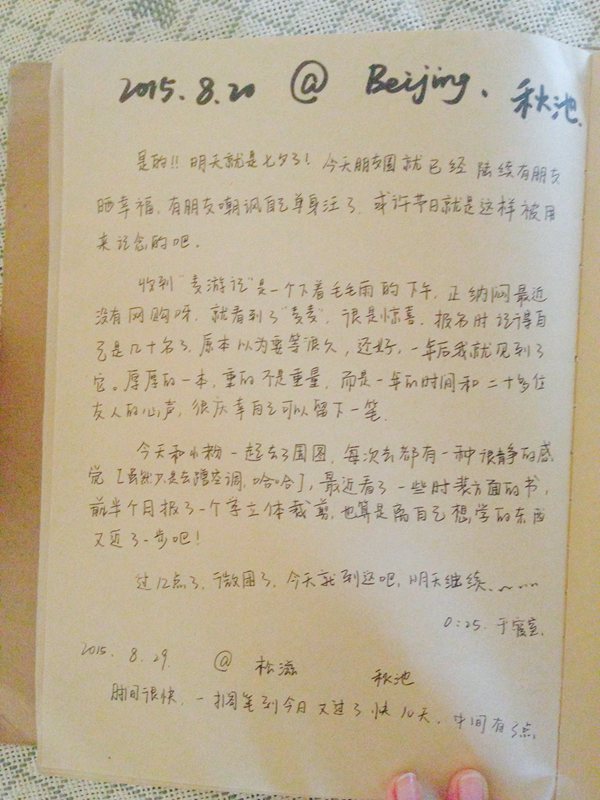 2015.8.20 @ Beijing. 秋池.
是的!! 明天就是七夕了! 今天朋友圈就已经陆续有朋友
晒幸福, 有朋友嘲讽自己单身汪了, 或许节日就是这样被用
来记念的吧。
收到"麦游记"是一个下着毛毛雨的下午, 正纳闷最近
没有网购呀, 就看到了"麦麦", 很是惊喜, 报名时记得自
己是几十名了, 原本以为要等很久, 还好, 一年后我就见到了
它。厚厚的一本, 重的不是重量, 而是一年的时间和二十多位
友人的心声, 很庆幸自己可以留下一笔.
今天和小粉一起去了国图, 每次去都有一种很静的感
觉 [虽然只是去蹭空调, 哈哈], 最近看了一些时装方面的书,
前半个月报了一个学立体裁剪, 也算是离自己想学的东西
又近了一步吧!
过12点了, 微困了, 今天就到这吧, 明天继续、~ ~~
0:25. 于寝室.
2015. 8.29. @ 松滋 秋池
时间很快, 一搁笔到今日又过了快10天, 中间有了点